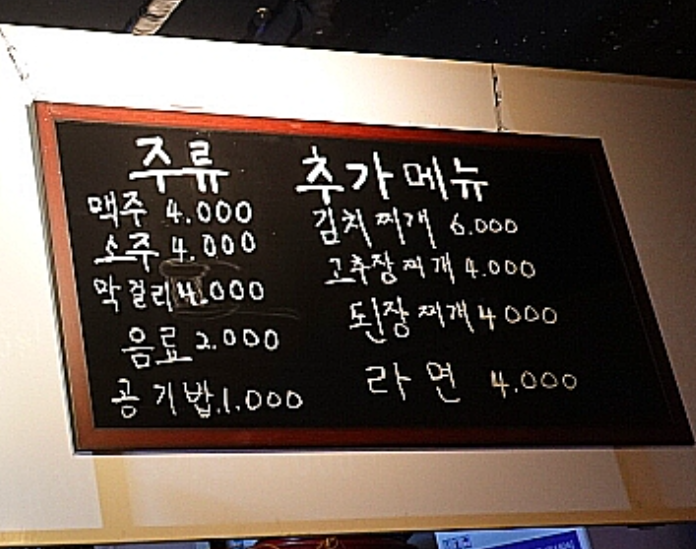 주류
맥주 4.000
소주 4.000
막걸리 4.000
음료 2.000
공기밥.1.000
추가메뉴
김치찌개 6.000
고추장찌개 4.000
된장찌개 4000
라면 4.000